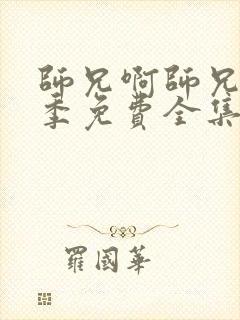 師兄啊師兄
季免費全集
羅國華